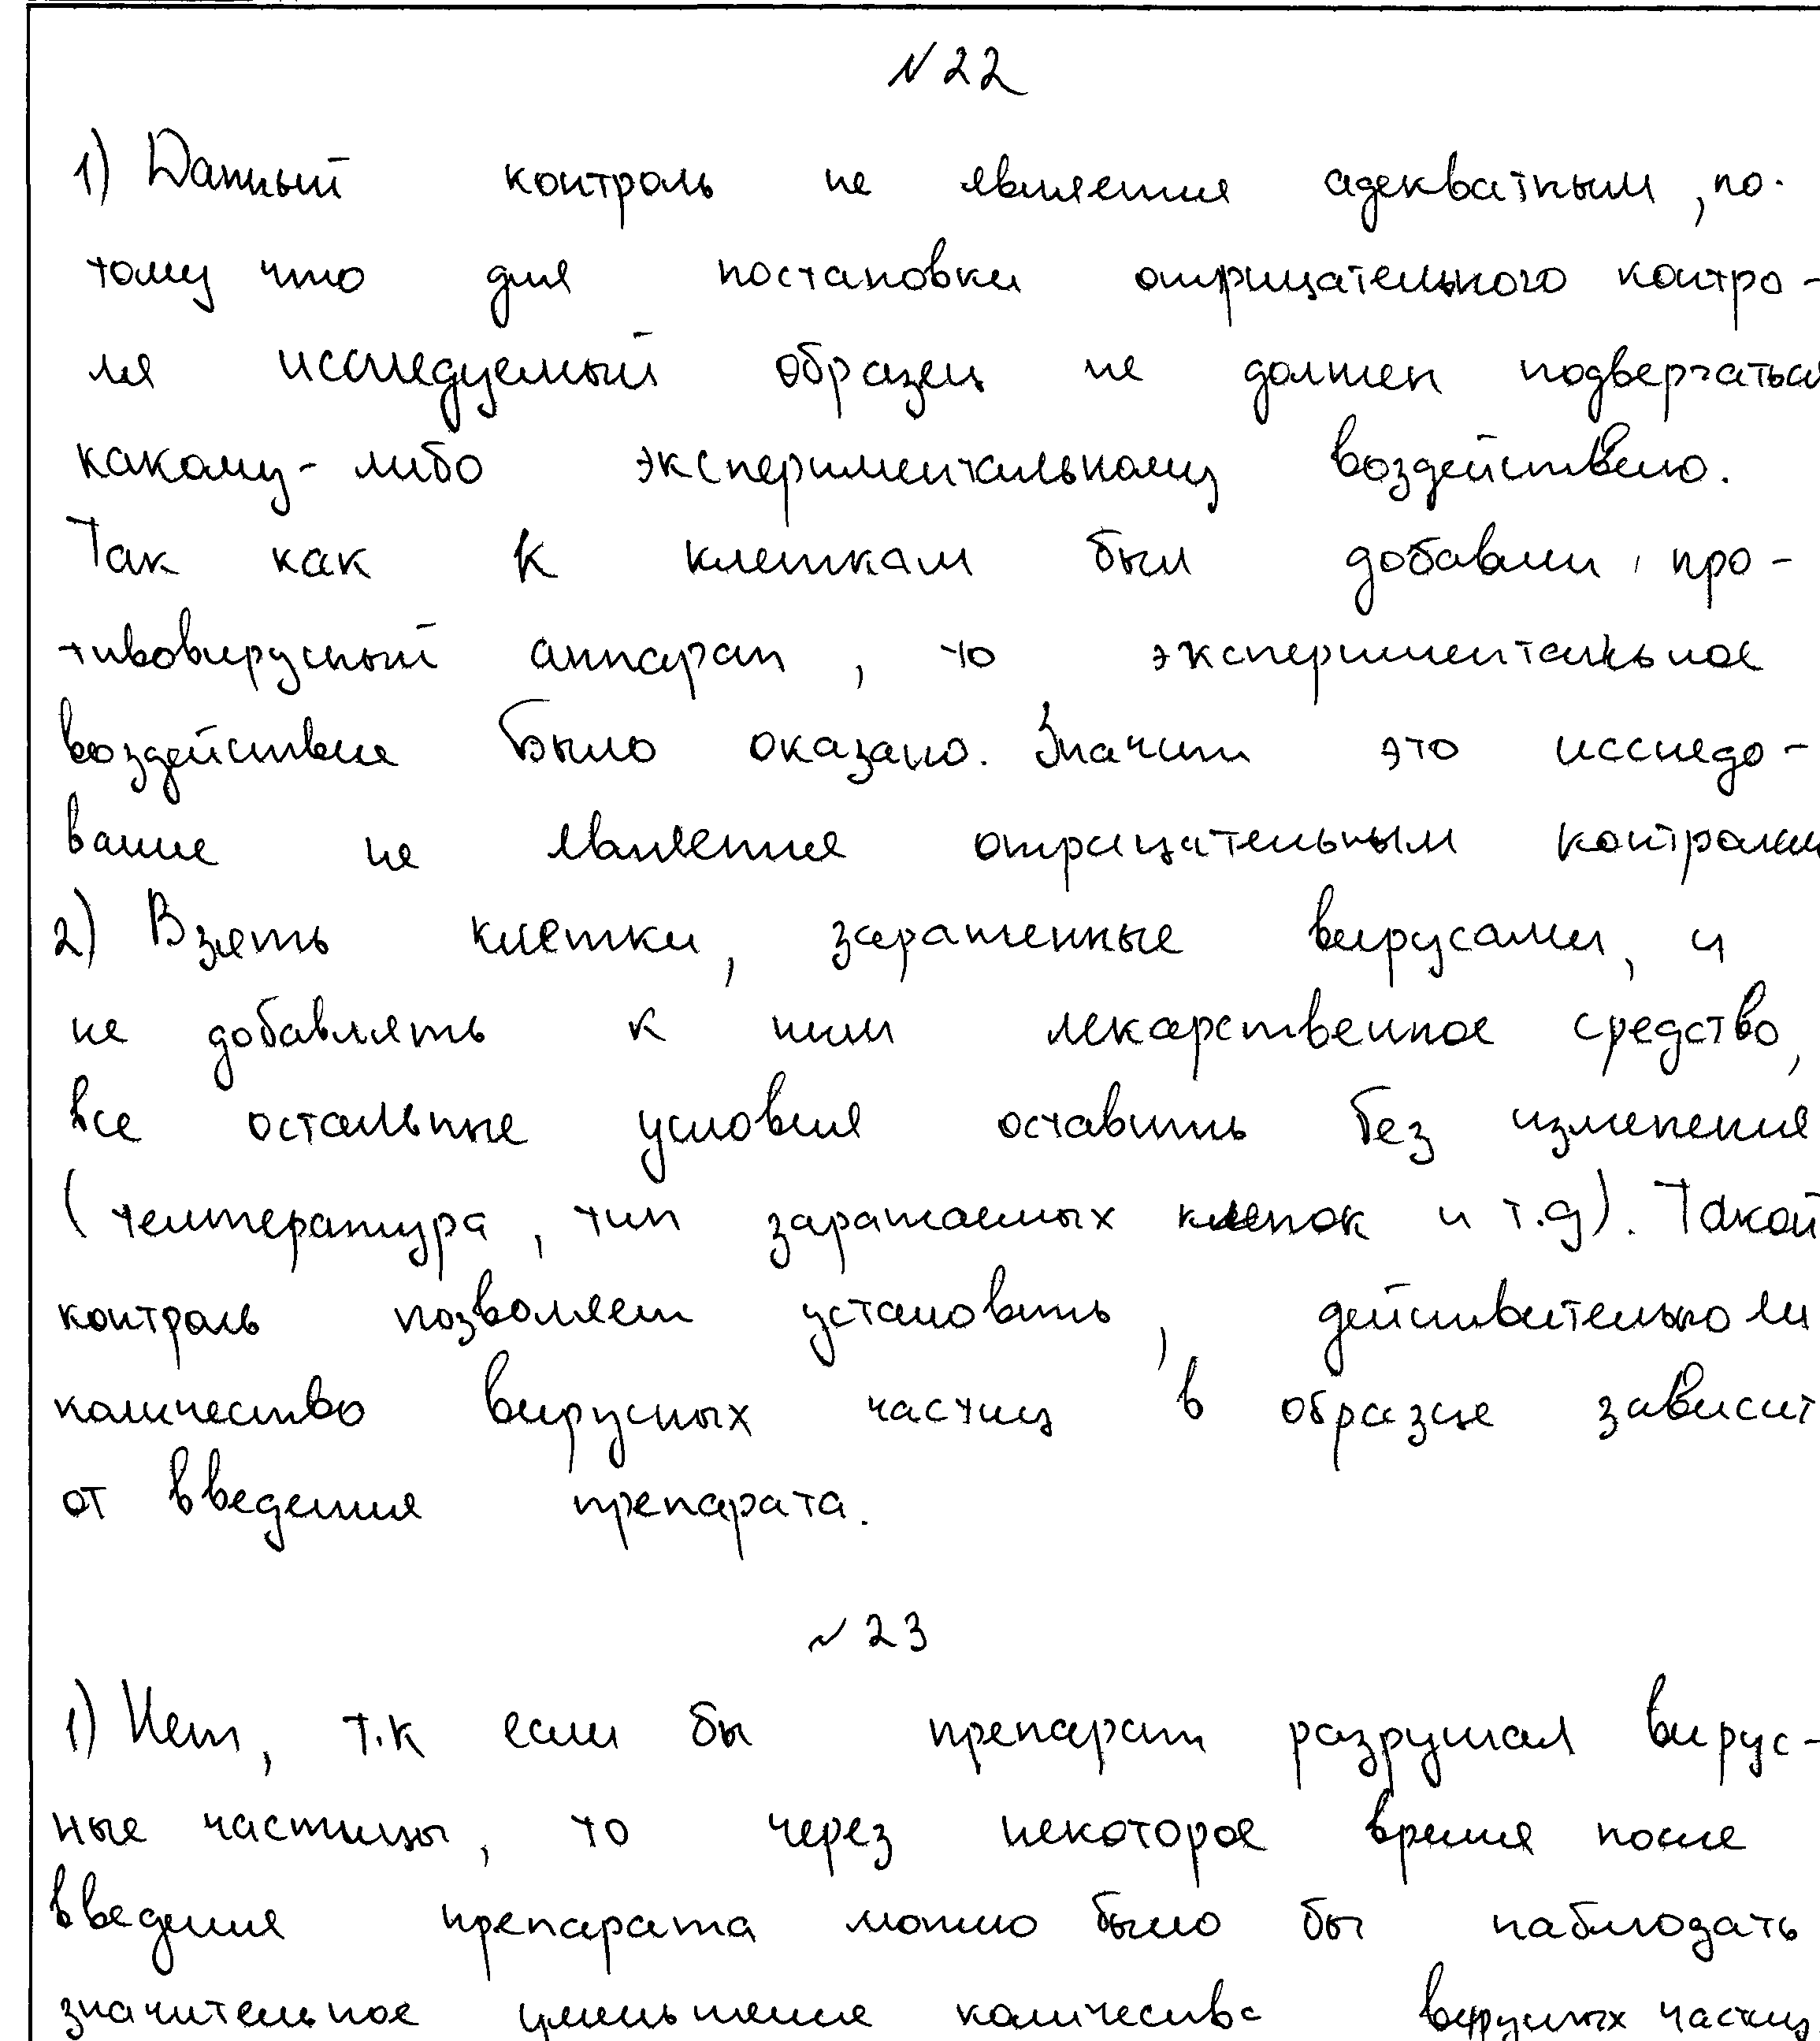 №22
1) Данный контроль не является адекватным, по-
тому что для постановки отрицательного контро-
ля исследуемый образец не должен подвергаться
какому-либо экспериментальному воздействию.
Так как к клеткам был добавлен про-
тивовирусный аппарат, то экспериментальное
воздействие было оказано. Значит это исследо-
вание не является отрицательным контролем
2) Взять клетки, зараженные вирусами, и
не добавлять к ним лекарственное средство,
все остальные условия оставить без изменения
(температура, тип заражаемых клеток и т.д). Такой
контроль позволяет установить, действительно ли
количество вирусных частиц в образце зависит
от введения препарата.
№23
1) Нет, т.к если бы препарат разрушал вирус-
ные частицы, то через некоторое время после
введения препарата можно было бы наблюдать
значительное уменьшение количества вирусных частиц